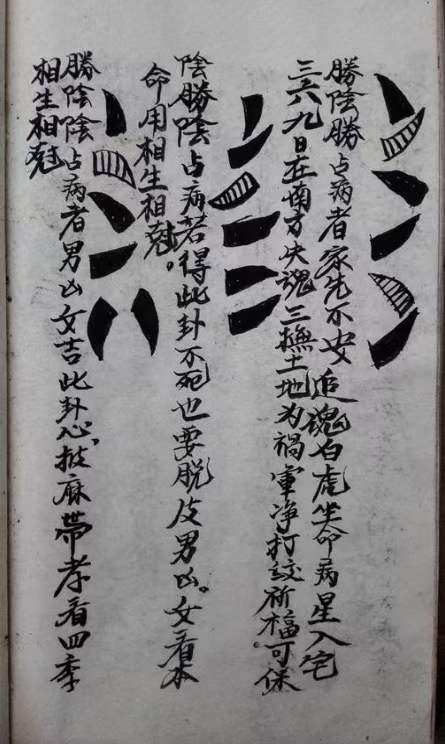 勝陰勝占病者家先不安追魂白虎坐命病星入宅
三六九日在南方失魂三撫土地为禍軍净打紋祈福可保
陰勝陰占病若得此卦不死也要脱皮男凶。女看本
命用相生相尅。
勝陰陰占病者男凶女吉此卦必披麻帶孝看四季
相生相尅